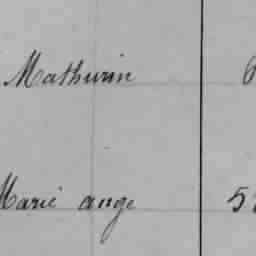 Mathurin
Marie ange 5